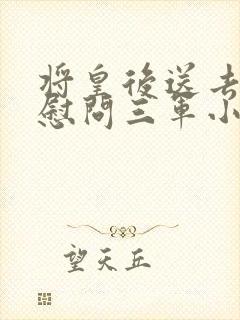 將皇後送去
慰問三軍小
望天丘